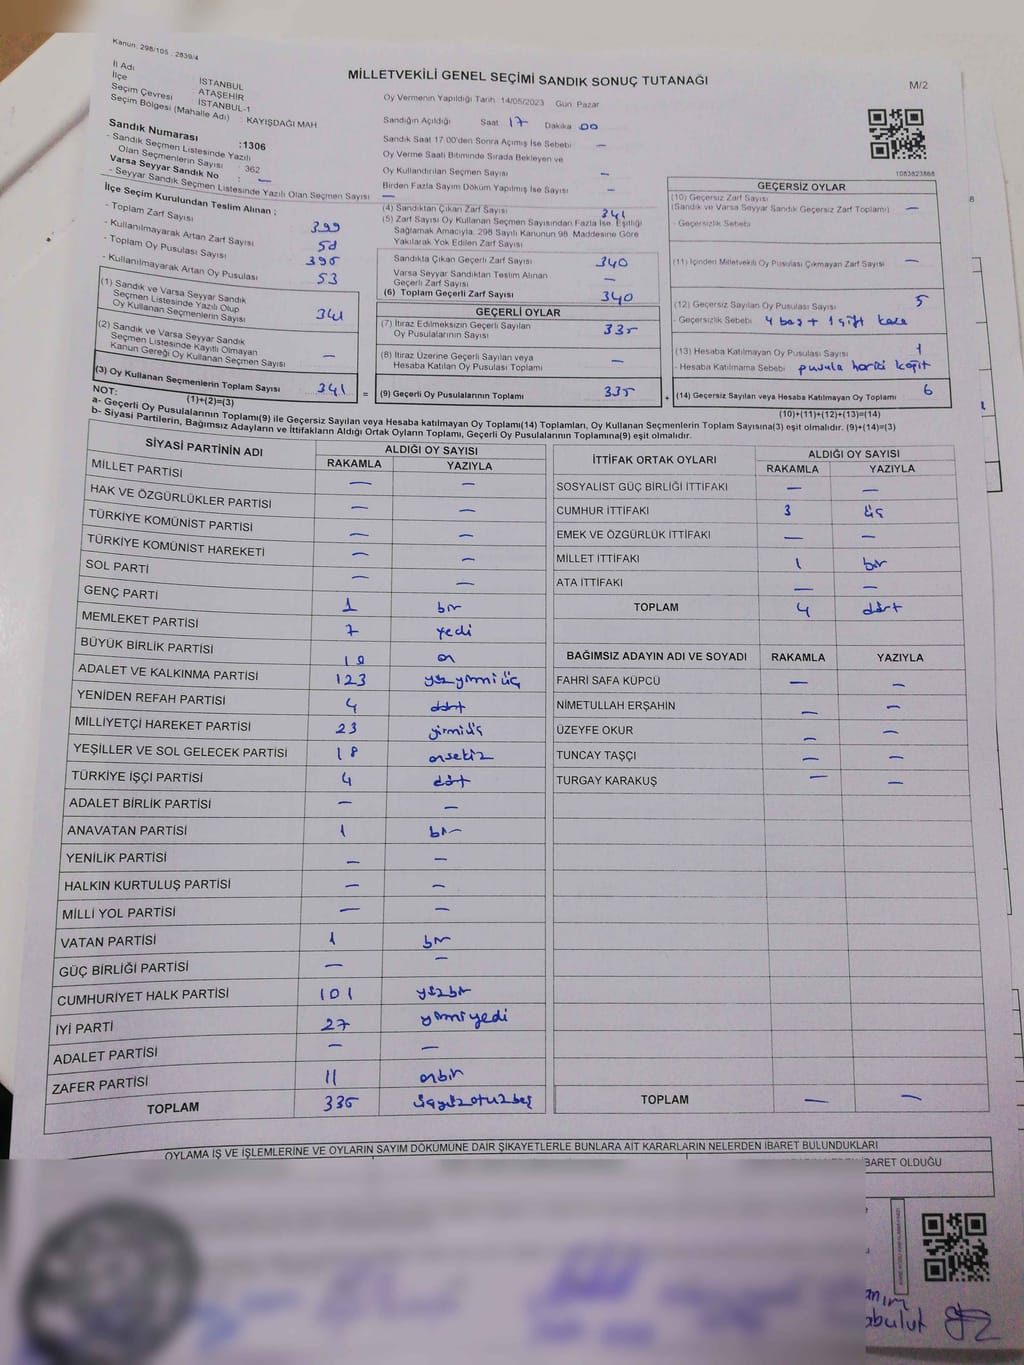 Kanun: 298/105 - 2839/4
MİLLETVEKİLİ GENEL SEÇİMİ SANDIK SONUÇ TUTANAĞI
M/2
İl Adı İSTANBUL
İlçe ATAŞEHİR
Seçim Çevresi İSTANBUL-1
Seçim Bölgesi (Mahalle Adı) : KAYIŞDAĞI MAH
Sandık Numarası :1306
- Sandık Seçmen Listesinde Yazılı
Olan Seçmenlerin Sayısı : 362
Varsa Seyyar Sandık No : —
- Seyyar Sandık Seçmen Listesinde Yazılı Olan Seçmen Sayısı : —
Oy Vermenin Yapıldığı Tarih 14/05/2023 Gün Pazar
Sandığın Açıldığı Saat 17 Dakika 00
Sandık Saat 17:00'den Sonra Açımış İse Sebebi —
Oy Verme Saati Bitiminde Sırada Bekleyen ve
Oy Kullandırılan Seçmen Sayısı —
Birden Fazla Sayım Döküm Yapılmış İse Sayısı —
1083823868
İlçe Seçim Kurulundan Teslim Alınan ;
- Toplam Zarf Sayısı 399
- Kullanılmayarak Artan Zarf Sayısı 58
- Toplam Oy Pusulası Sayısı 395
- Kullanılmayarak Artan Oy Pusulası 53
(1) Sandık ve Varsa Seyyar Sandık
Seçmen Listesinde Yazılı Olup
Oy Kullanan Seçmenlerin Sayısı 341
(2) Sandık ve Varsa Seyyar Sandık
Seçmen Listesinde Kayıtlı Olmayan
Kanun Gereği Oy Kullanan Seçmen Sayısı —
(3) Oy Kullanan Seçmenlerin Toplam Sayısı 341
(1)+(2)=(3)
(4) Sandıktan Çıkan Zarf Sayısı 341
(5) Zarf Sayısı Oy Kullanan Seçmen Sayısından Fazla İse, Eşitliği
Sağlamak Amacıyla, 298 Sayılı Kanunun 98. Maddesine Göre
Yakılarak Yok Edilen Zarf Sayısı
Sandıkta Çıkan Geçerli Zarf Sayısı 340
Varsa Seyyar Sandıktan Teslim Alınan
Geçerli Zarf Sayısı —
(6) Toplam Geçerli Zarf Sayısı 340
GEÇERLİ OYLAR
(7) İtiraz Edilmeksizin Geçerli Sayılan
Oy Pusulalarının Sayısı 335
(8) İtiraz Üzerine Geçerli Sayılan veya
Hesaba Katılan Oy Pusulası Toplamı —
= (9) Geçerli Oy Pusulalarının Toplamı 335 +
GEÇERSİZ OYLAR
(10) Geçersiz Zarf Sayısı
(Sandık ve Varsa Seyyar Sandık Geçersiz Zarf Toplamı) —
- Geçersizlik Sebebi
(11) İçinden Milletvekili Oy Pusulası Çıkmayan Zarf Sayısı —
(12) Geçersiz Sayılan Oy Pusulası Sayısı 5
- Geçersizlik Sebebi 4 boş + 1 çift kaşe
(13) Hesaba Katılmayan Oy Pusulası Sayısı 1
- Hesaba Katılmama Sebebi pusula harici kağıt
(14) Geçersiz Sayılan veya Hesaba Katılmayan Oy Toplamı 6
(10)+(11)+(12)+(13)=(14)
NOT:
a- Geçerli Oy Pusulalarının Toplamı(9) ile Geçersiz Sayılan veya Hesaba katılmayan Oy Toplamı(14) Toplamları, Oy Kullanan Seçmenlerin Toplam Sayısına(3) eşit olmalıdır. (9)+(14)=(3)
b- Siyasi Partilerin, Bağımsız Adayların ve İttifakların Aldığı Ortak Oyların Toplamı, Geçerli Oy Pusulalarının Toplamına(9) eşit olmalıdır.
SİYASİ PARTİNİN ADI ALDIĞI OY SAYISI
RAKAMLA YAZIYLA
MİLLET PARTİSİ — —
HAK VE ÖZGÜRLÜKLER PARTİSİ — —
TÜRKİYE KOMÜNİST PARTİSİ — —
TÜRKİYE KOMÜNİST HAREKETİ — —
SOL PARTİ — —
GENÇ PARTİ 1 bir
MEMLEKET PARTİSİ 7 yedi
BÜYÜK BİRLİK PARTİSİ 10 on
ADALET VE KALKINMA PARTİSİ 123 yüzyirmiüç
YENİDEN REFAH PARTİSİ 4 dört
MİLLİYETÇİ HAREKET PARTİSİ 23 yirmiüç
YEŞİLLER VE SOL GELECEK PARTİSİ 18 onsekiz
TÜRKİYE İŞÇİ PARTİSİ 4 dört
ADALET BİRLİK PARTİSİ — —
ANAVATAN PARTİSİ 1 bir
YENİLİK PARTİSİ — —
HALKIN KURTULUŞ PARTİSİ — —
MİLLİ YOL PARTİSİ — —
VATAN PARTİSİ 1 bir
GÜÇ BİRLİĞİ PARTİSİ — —
CUMHURİYET HALK PARTİSİ 101 yüzbir
İYİ PARTİ 27 yirmiyedi
ADALET PARTİSİ — —
ZAFER PARTİSİ 11 onbir
TOPLAM 335 üçyüzotuzbeş
İTTİFAK ORTAK OYLARI ALDIĞI OY SAYISI
RAKAMLA YAZIYLA
SOSYALİST GÜÇ BİRLİĞİ İTTİFAKI — —
CUMHUR İTTİFAKI 3 üç
EMEK VE ÖZGÜRLÜK İTTİFAKI — —
MİLLET İTTİFAKI 1 bir
ATA İTTİFAKI — —
TOPLAM 4 dört
BAĞIMSIZ ADAYIN ADI VE SOYADI RAKAMLA YAZIYLA
FAHRİ SAFA KÜPCÜ — —
NİMETULLAH ERŞAHİN — —
ÜZEYFE OKUR — —
TUNCAY TAŞÇI — —
TURGAY KARAKUŞ — —
TOPLAM — —
OYLAMA İŞ VE İŞLEMLERİNE VE OYLARIN SAYIM DÖKÜMÜNE DAİR ŞİKAYETLERLE BUNLARA AİT KARARLARIN NELERDEN İBARET BULUNDUKLARI
İBARET OLDUĞU